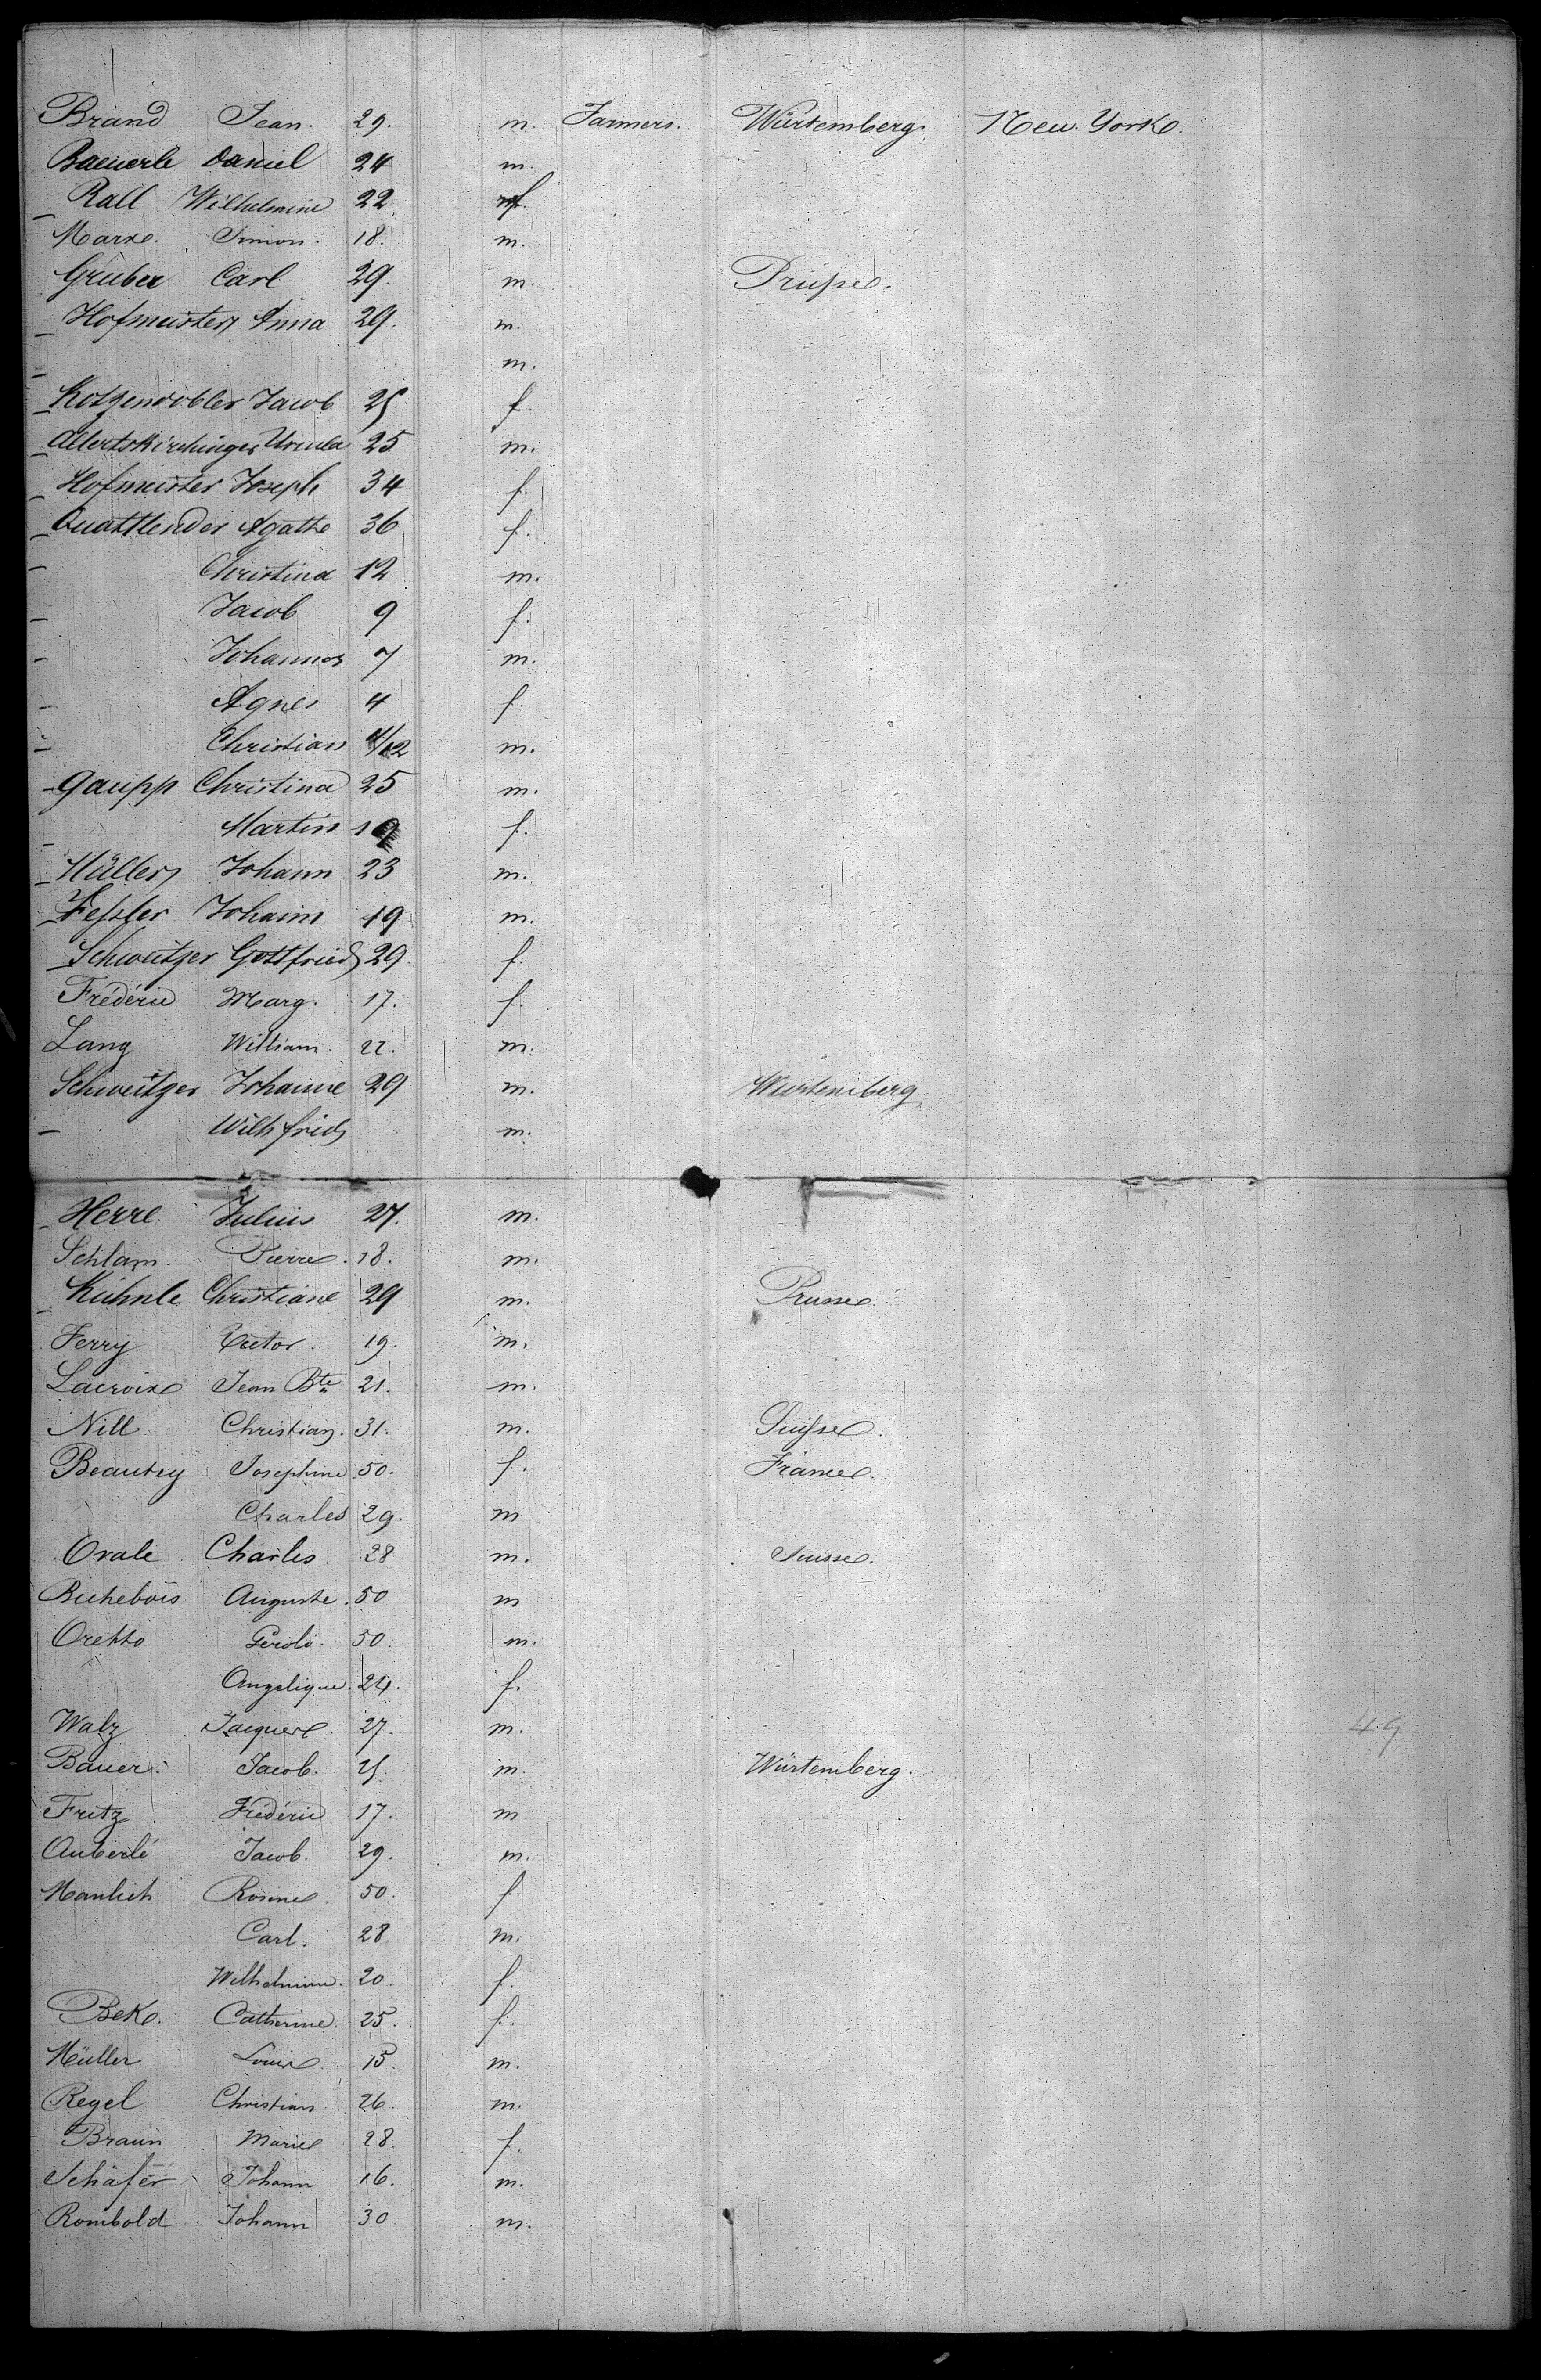 Briand Jean. 29. m. Farmers. Würtemberg. New. York.
Baeuerle Daniel 24 m.
Rall Wilhelmine 22 f.
Marx. Simon. 18. m.
Gruber Carl 29. m Prusse.
Hofmeister Anna 29. m.
m.
Kotzendobler Jacob 25 f.
Allertskirchinger Ursula 25 m.
Hofmeister Joseph 34 f.
Quattlender Agathe 36 f.
Christina 12 m.
Jacob 9 f.
Johannes 7 m.
Agnes 4 f.
Christian /12 m.
Gaupp Christina 25 m.
Martin f.
Müller Johann 23 m.
Fessler Johann 19 m.
Schweitzer Gottfried 29. f.
Frédéric Marg. 17. f.
Lang William. 22. m.
Schweitzer Johanne 29 m. Wurtemberg
Wilh fried m.
Herre Julius 27. m.
Schlam. Pierre. 18. m.
Kühnle Christiane 29 m. Prusse.
Ferry Victor. 19. m.
Lacroix Jean Bte 21. m.
Nill Christian. 31. m. Suisse.
Beautey Josephine 50. f. France.
Charles 29. m
Orale Charles. 28 m. Suisse.
Bichebois Auguste. 50 m
Oretto 50. m.
Angelique. 24. f.
Walz Jacques. 27. m. 49
Bauer. Jacob. 25. m. Würtemberg.
Fritz Frédéric 17. m
Auberlé Jacob. 29. m.
Manlich Rosine 50. f
Carl. 28 m.
Wilhelmine. 20. f.
Bek. Catherine. 25. f.
Müller Louis. 15. m.
Regel Christian. 26. m.
Braun Marie 28. f.
Schäfer Johann 16. m.
Rombold Johann 30. m.